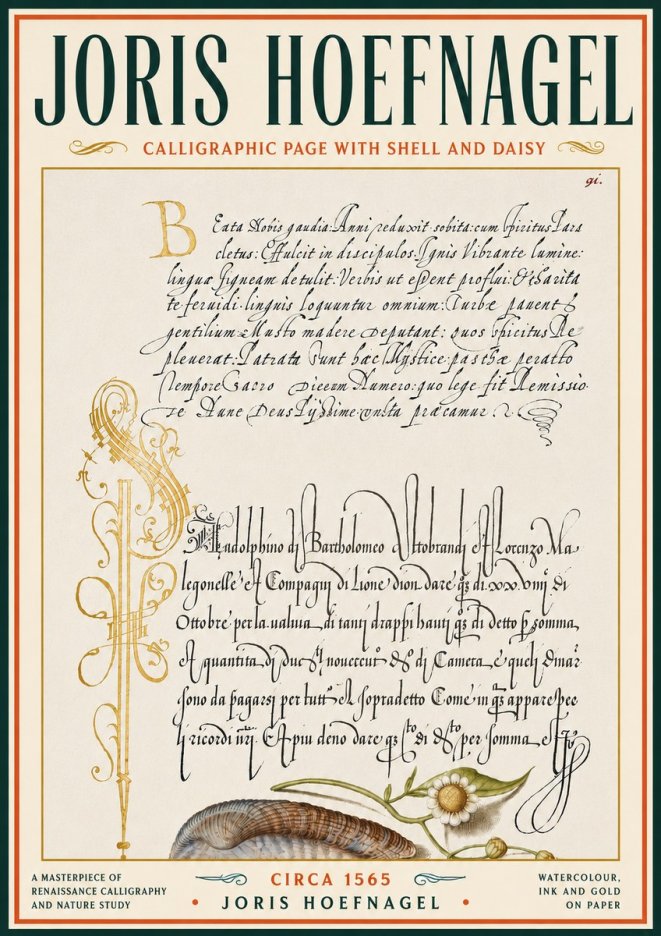 JORIS HOEFNAGEL
CALLIGRAPHIC PAGE WITH SHELL AND DAISY
gi.
Beata Nobis gaudia: Anni reduxit sobita: cum spiritus Para
cletus: Effulcit in discipulos. Ignis Vibrante lumine:
linguæ figneam detulit: Verbis ut essent proflui: Et Charita
te feruidi: linguis loquuntur omnium: Turbæ pauent
gentilium: Musto madere deputant: quos spicitus Re
pleuerat: Patrata sunt hæc Mystice: paschæ peratto
Tempore Sacro Numero: quo lege fit Remissio
Nunc Deus præcamur
di Bartholomeo Lorenzo Ma
legonelle et Compagnj di Lione dion dare di
Ottobre per la ualuta di tantj drappi hautj di detto somma
et quantita di Camera e quelj
sono da pagarsj per tutto el sopradetto Come in appare
lj ricordi Et piu deno dare di per somma
A MASTERPIECE OF
RENAISSANCE CALLIGRAPHY
AND NATURE STUDY
CIRCA 1565
• JORIS HOEFNAGEL •
WATERCOLOUR,
INK AND GOLD
ON PAPER